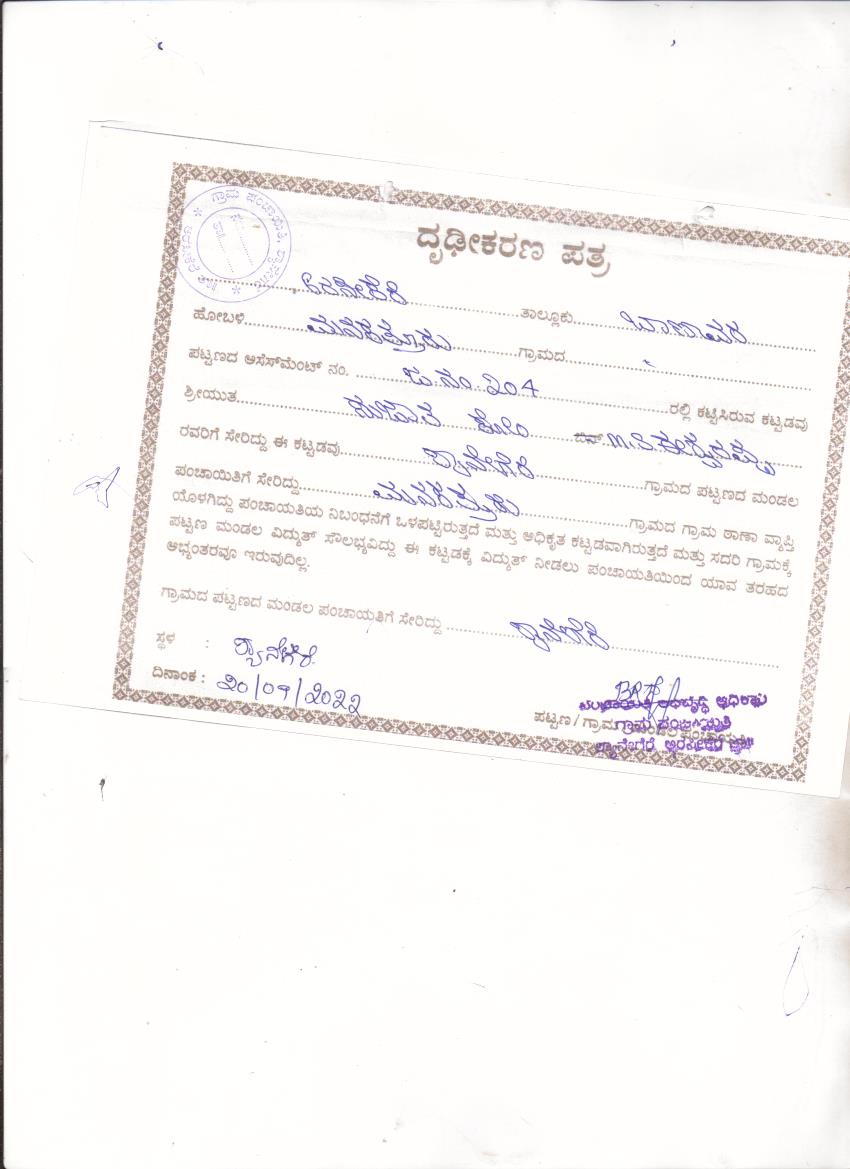 ಗ್ರಾಮ ಪಂಚಾಯಿತಿ,
ದೃಢೀಕರಣ ಪತ್ರ
ಅರಸೀಕೆರೆ ತಾಲ್ಲೂಕು ಬಾಣಾವರ
ಹೋಬಳಿ ಗ್ರಾಮದ
ಪಟ್ಟಣದ ಅಸೆಸ್‌ಮೆಂಟ್ ನಂ. ಜ.ನಂ. 204 ರಲ್ಲಿ ಕಟ್ಟಿಸಿರುವ ಕಟ್ಟಡವು
ಶ್ರೀಯುತ ಕೋಂ ಬಿನ್ M.S.
ರವರಿಗೆ ಸೇರಿದ್ದು ಈ ಕಟ್ಟಡವು ಶ್ಯಾನೇಗೆರೆ ಗ್ರಾಮದ ಪಟ್ಟಣದ ಮಂಡಲ
ಪಂಚಾಯಿತಿಗೆ ಸೇರಿದ್ದು ಗ್ರಾಮದ ಗ್ರಾಮ ಠಾಣಾ ವ್ಯಾಪ್ತಿ
ಯೊಳಗಿದ್ದು ಪಂಚಾಯತಿಯ ನಿಬಂಧನೆಗೆ ಒಳಪಟ್ಟಿರುತ್ತದೆ ಮತ್ತು ಅಧಿಕೃತ ಕಟ್ಟಡವಾಗಿರುತ್ತದೆ ಮತ್ತು ಸದರಿ ಗ್ರಾಮಕ್ಕೆ
ಪಟ್ಟಣ ಮಂಡಲ ವಿದ್ಯುತ್ ಸೌಲಭ್ಯವಿದ್ದು ಈ ಕಟ್ಟಡಕ್ಕೆ ವಿದ್ಯುತ್ ನೀಡಲು ಪಂಚಾಯತಿಯಿಂದ ಯಾವ ತರಹದ
ಅಭ್ಯಂತರವೂ ಇರುವುದಿಲ್ಲ.
ಗ್ರಾಮದ ಪಟ್ಟಣದ ಮಂಡಲ ಪಂಚಾಯತಿಗೆ ಸೇರಿದ್ದು ಶ್ಯಾನೇಗೆರೆ
ಸ್ಥಳ : ಶ್ಯಾನೇಗೆರೆ
ದಿನಾಂಕ : 20/09/2022
ಪಂಚಾಯತಿ ಅಭಿವೃದ್ಧಿ ಅಧಿಕಾರಿ
ಪಟ್ಟಣ / ಗ್ರಾಮ ಮಂಡಲ ಪಂಚಾಯತಿ
ಗ್ರಾಮ ಪಂಚಾಯತಿ
ಶ್ಯಾನೇಗೆರೆ, ಅರಸೀಕೆರೆ ತಾ||